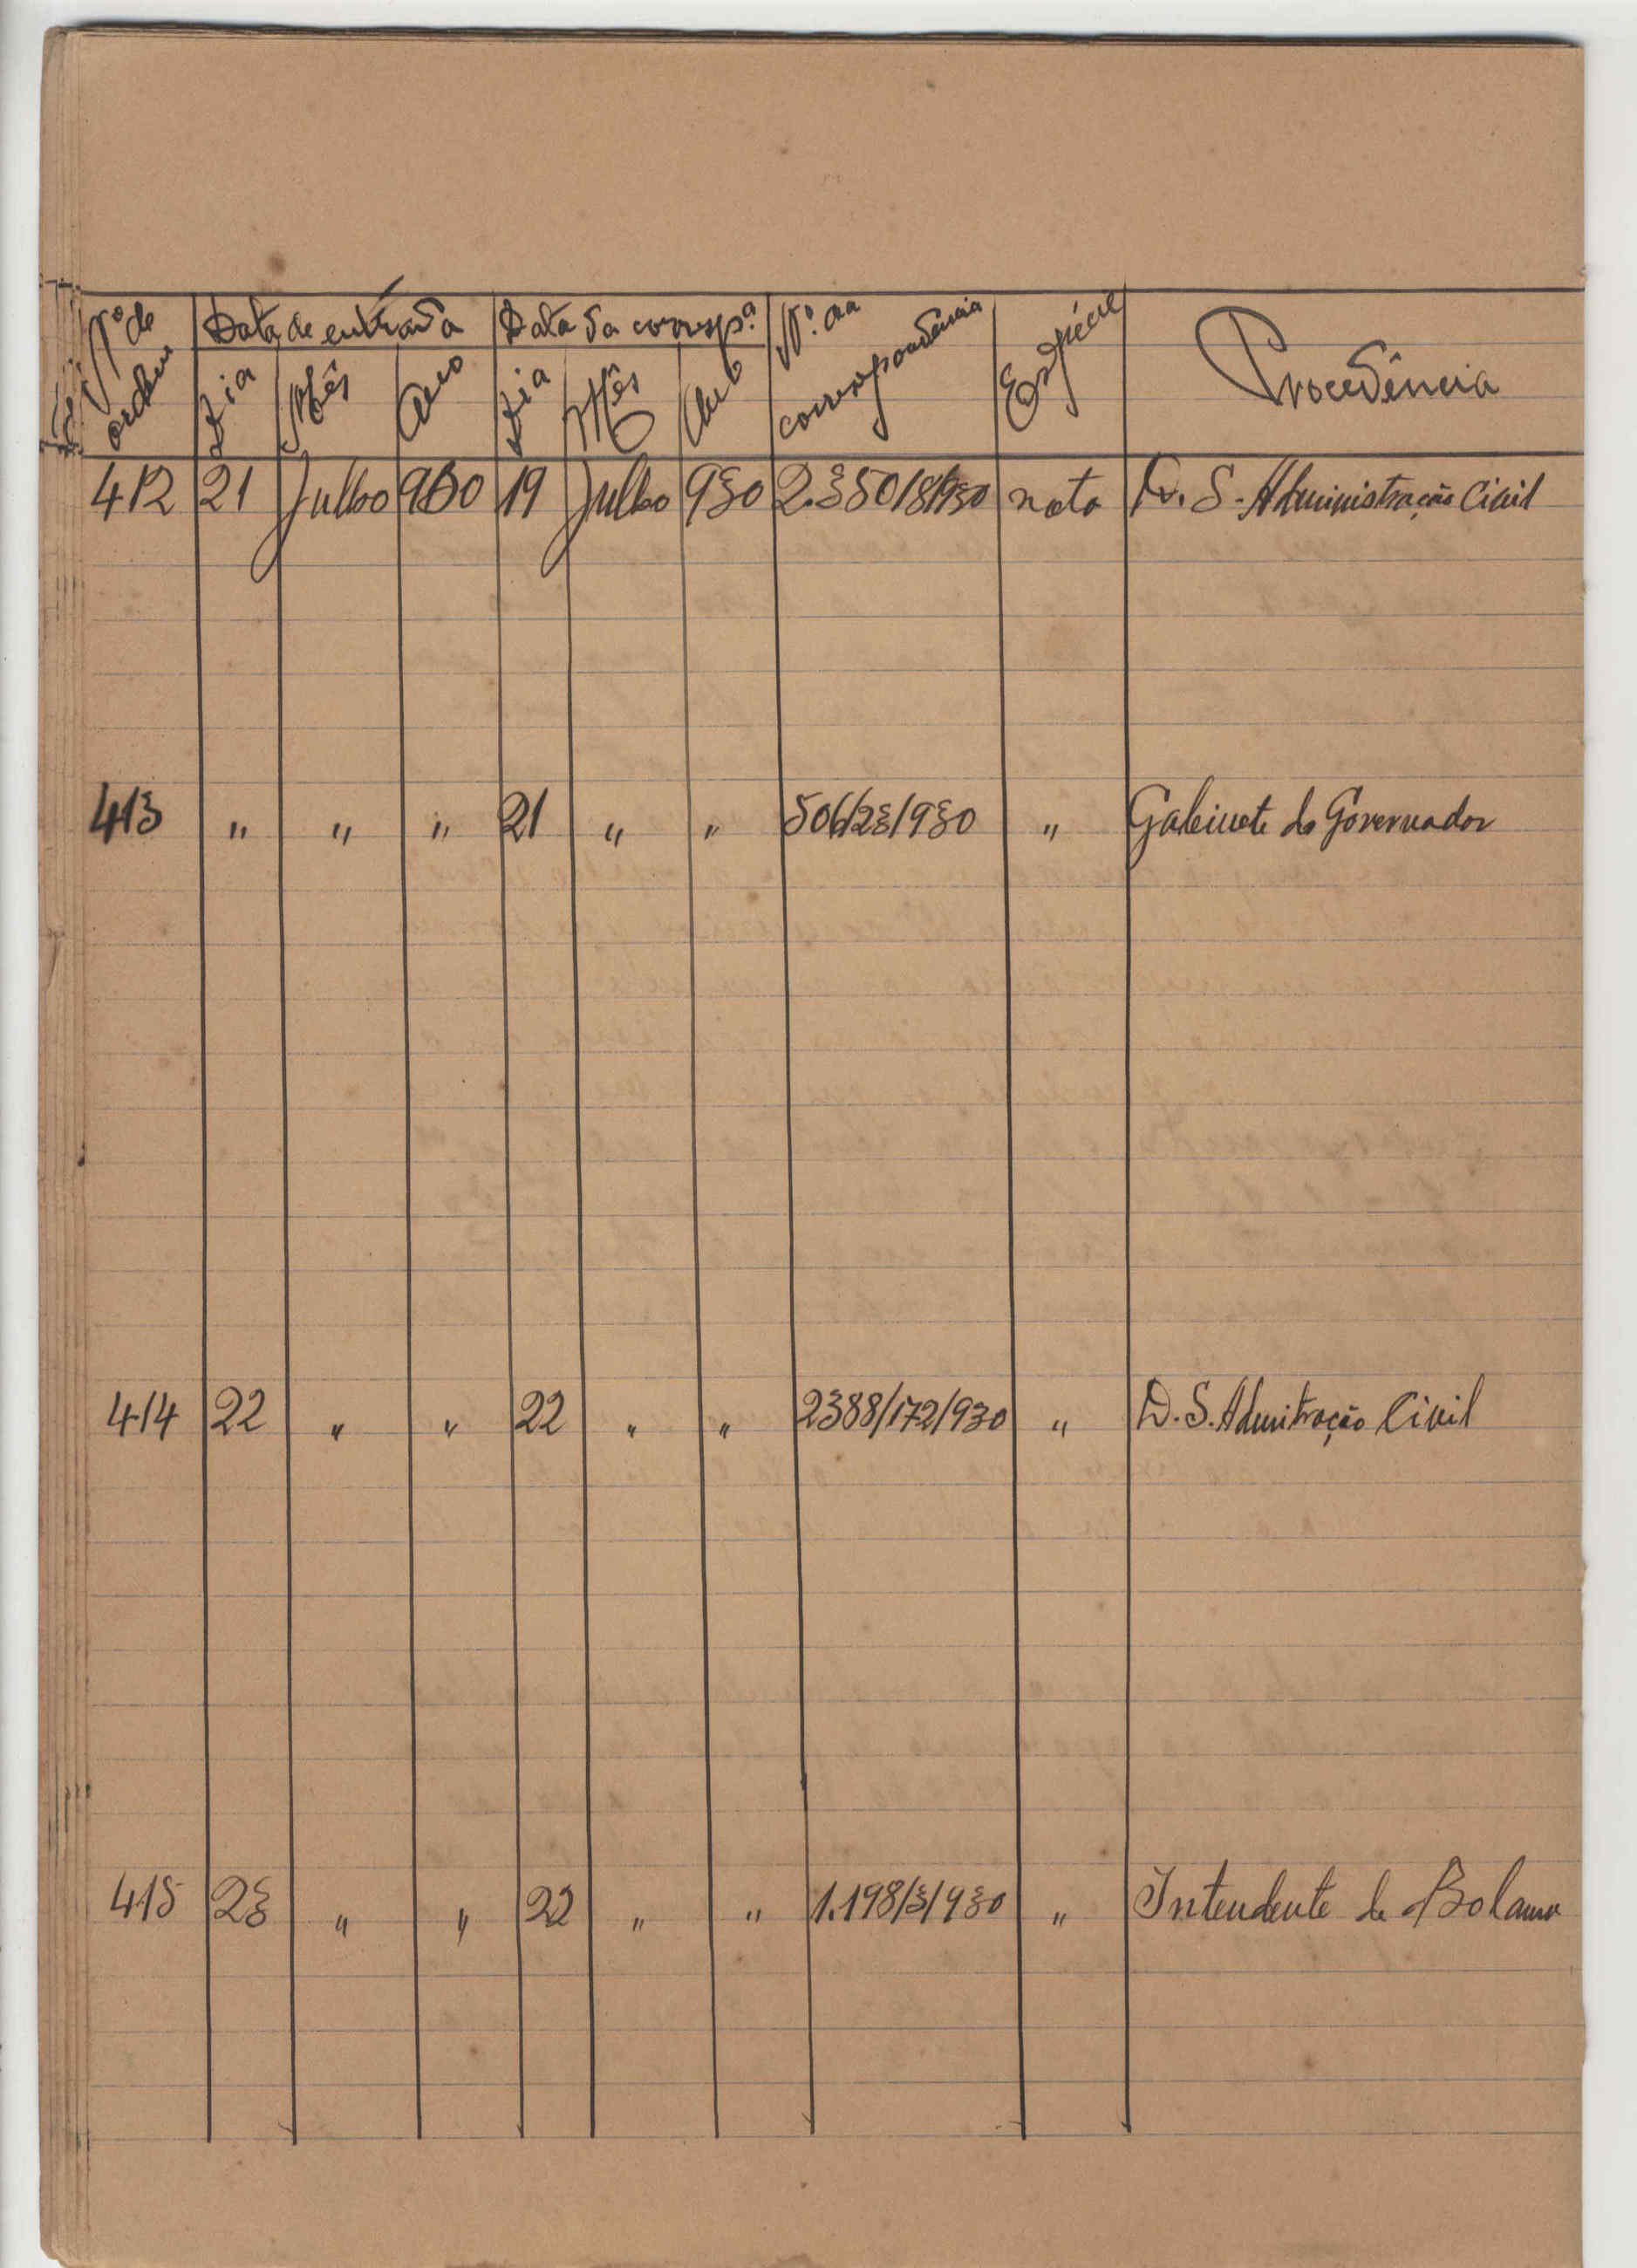 Nº de ordem Data de entrada Data da corresp.ª Nº. da correspondência Espécie Procedência
Dia Mês Ano Dia Mês Ano
412 21 Julho 930 19 Julho 930 2.350/8/930 nota D. S. Administração Civil
413 " " " 21 " " 506/23/930 " Gabinete do Governador
414 22 " " 22 " " 2388/172/930 " D. S. Admnitração Civil
415 23 " " 22 " " 1.198/3/930 " Intendente de Bolama